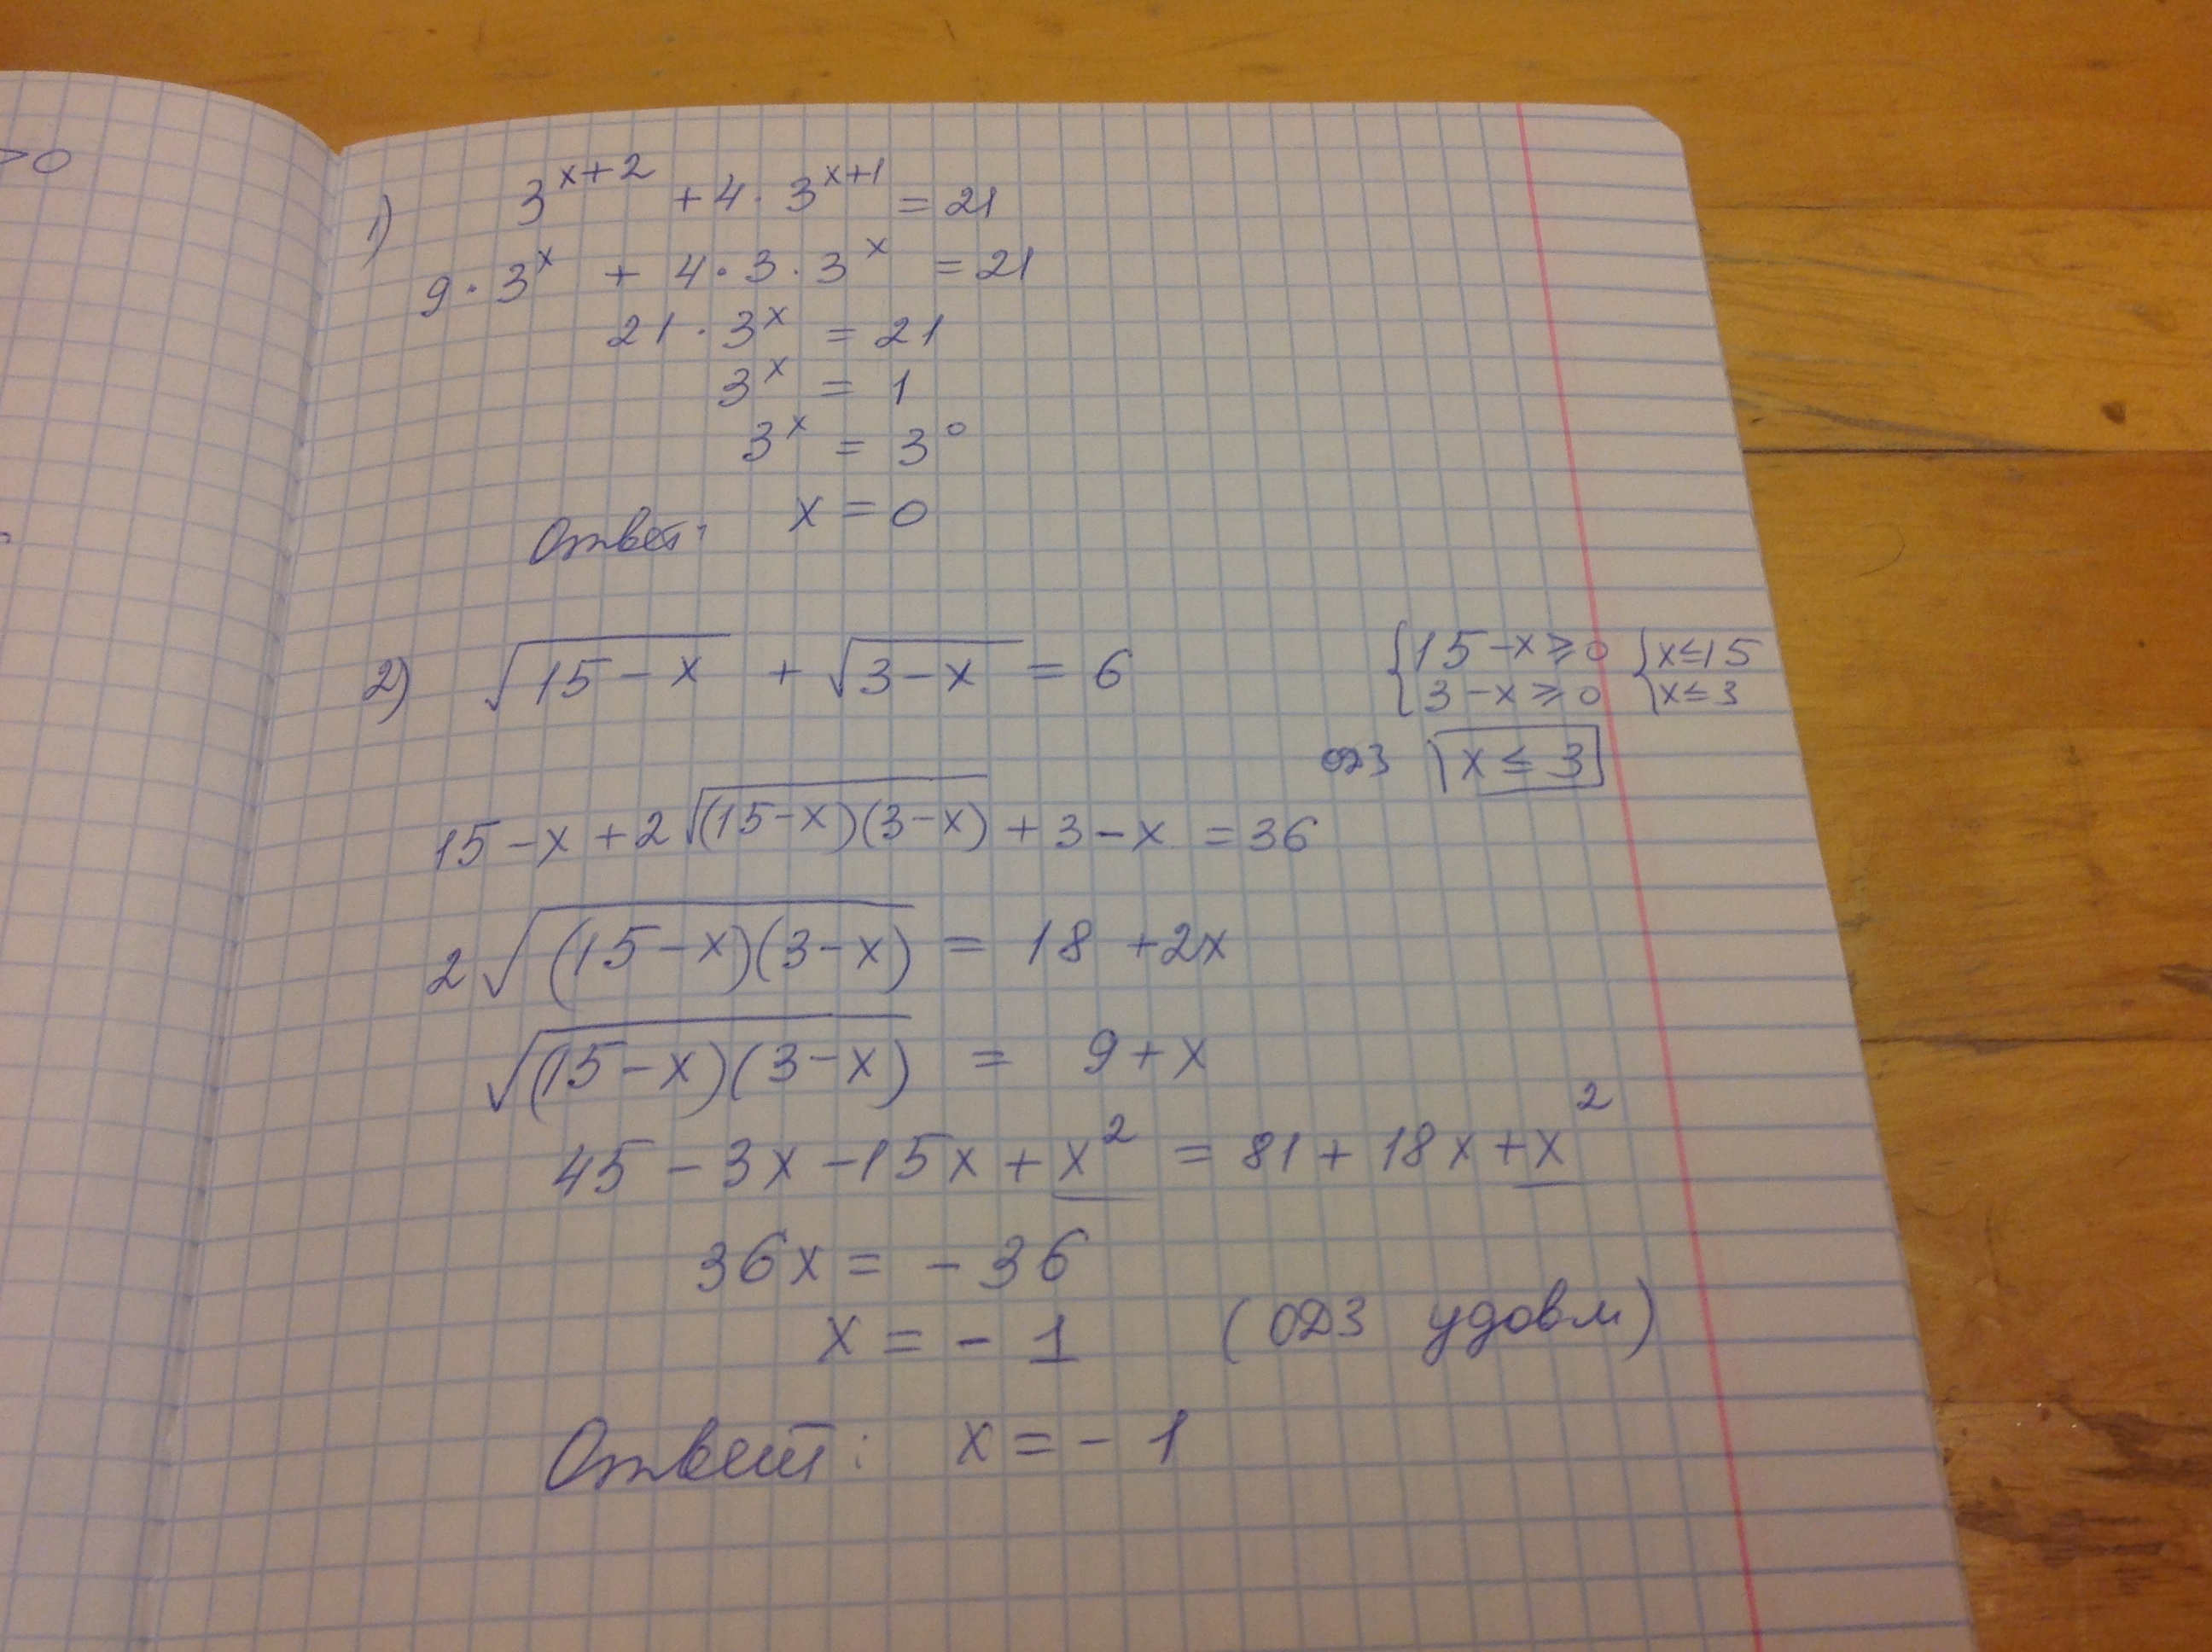 >0
1) 3^{x+2} + 4 · 3^{x+1} = 21
9 · 3^x + 4 · 3 · 3^x = 21
21 · 3^x = 21
3^x = 1
3^x = 3^0
Ответ: x = 0
2) √(15-x) + √(3-x) = 6
{15-x ≥ 0 {x ≤ 15
{3-x ≥ 0 {x ≤ 3
ОДЗ x ≤ 3
15-x + 2√((15-x)(3-x)) + 3-x = 36
2√((15-x)(3-x)) = 18 + 2x
√((15-x)(3-x)) = 9 + x
45 - 3x - 15x + x² = 81 + 18x + x²
36x = - 36
x = - 1 (ОДЗ удовл)
Ответ: x = - 1